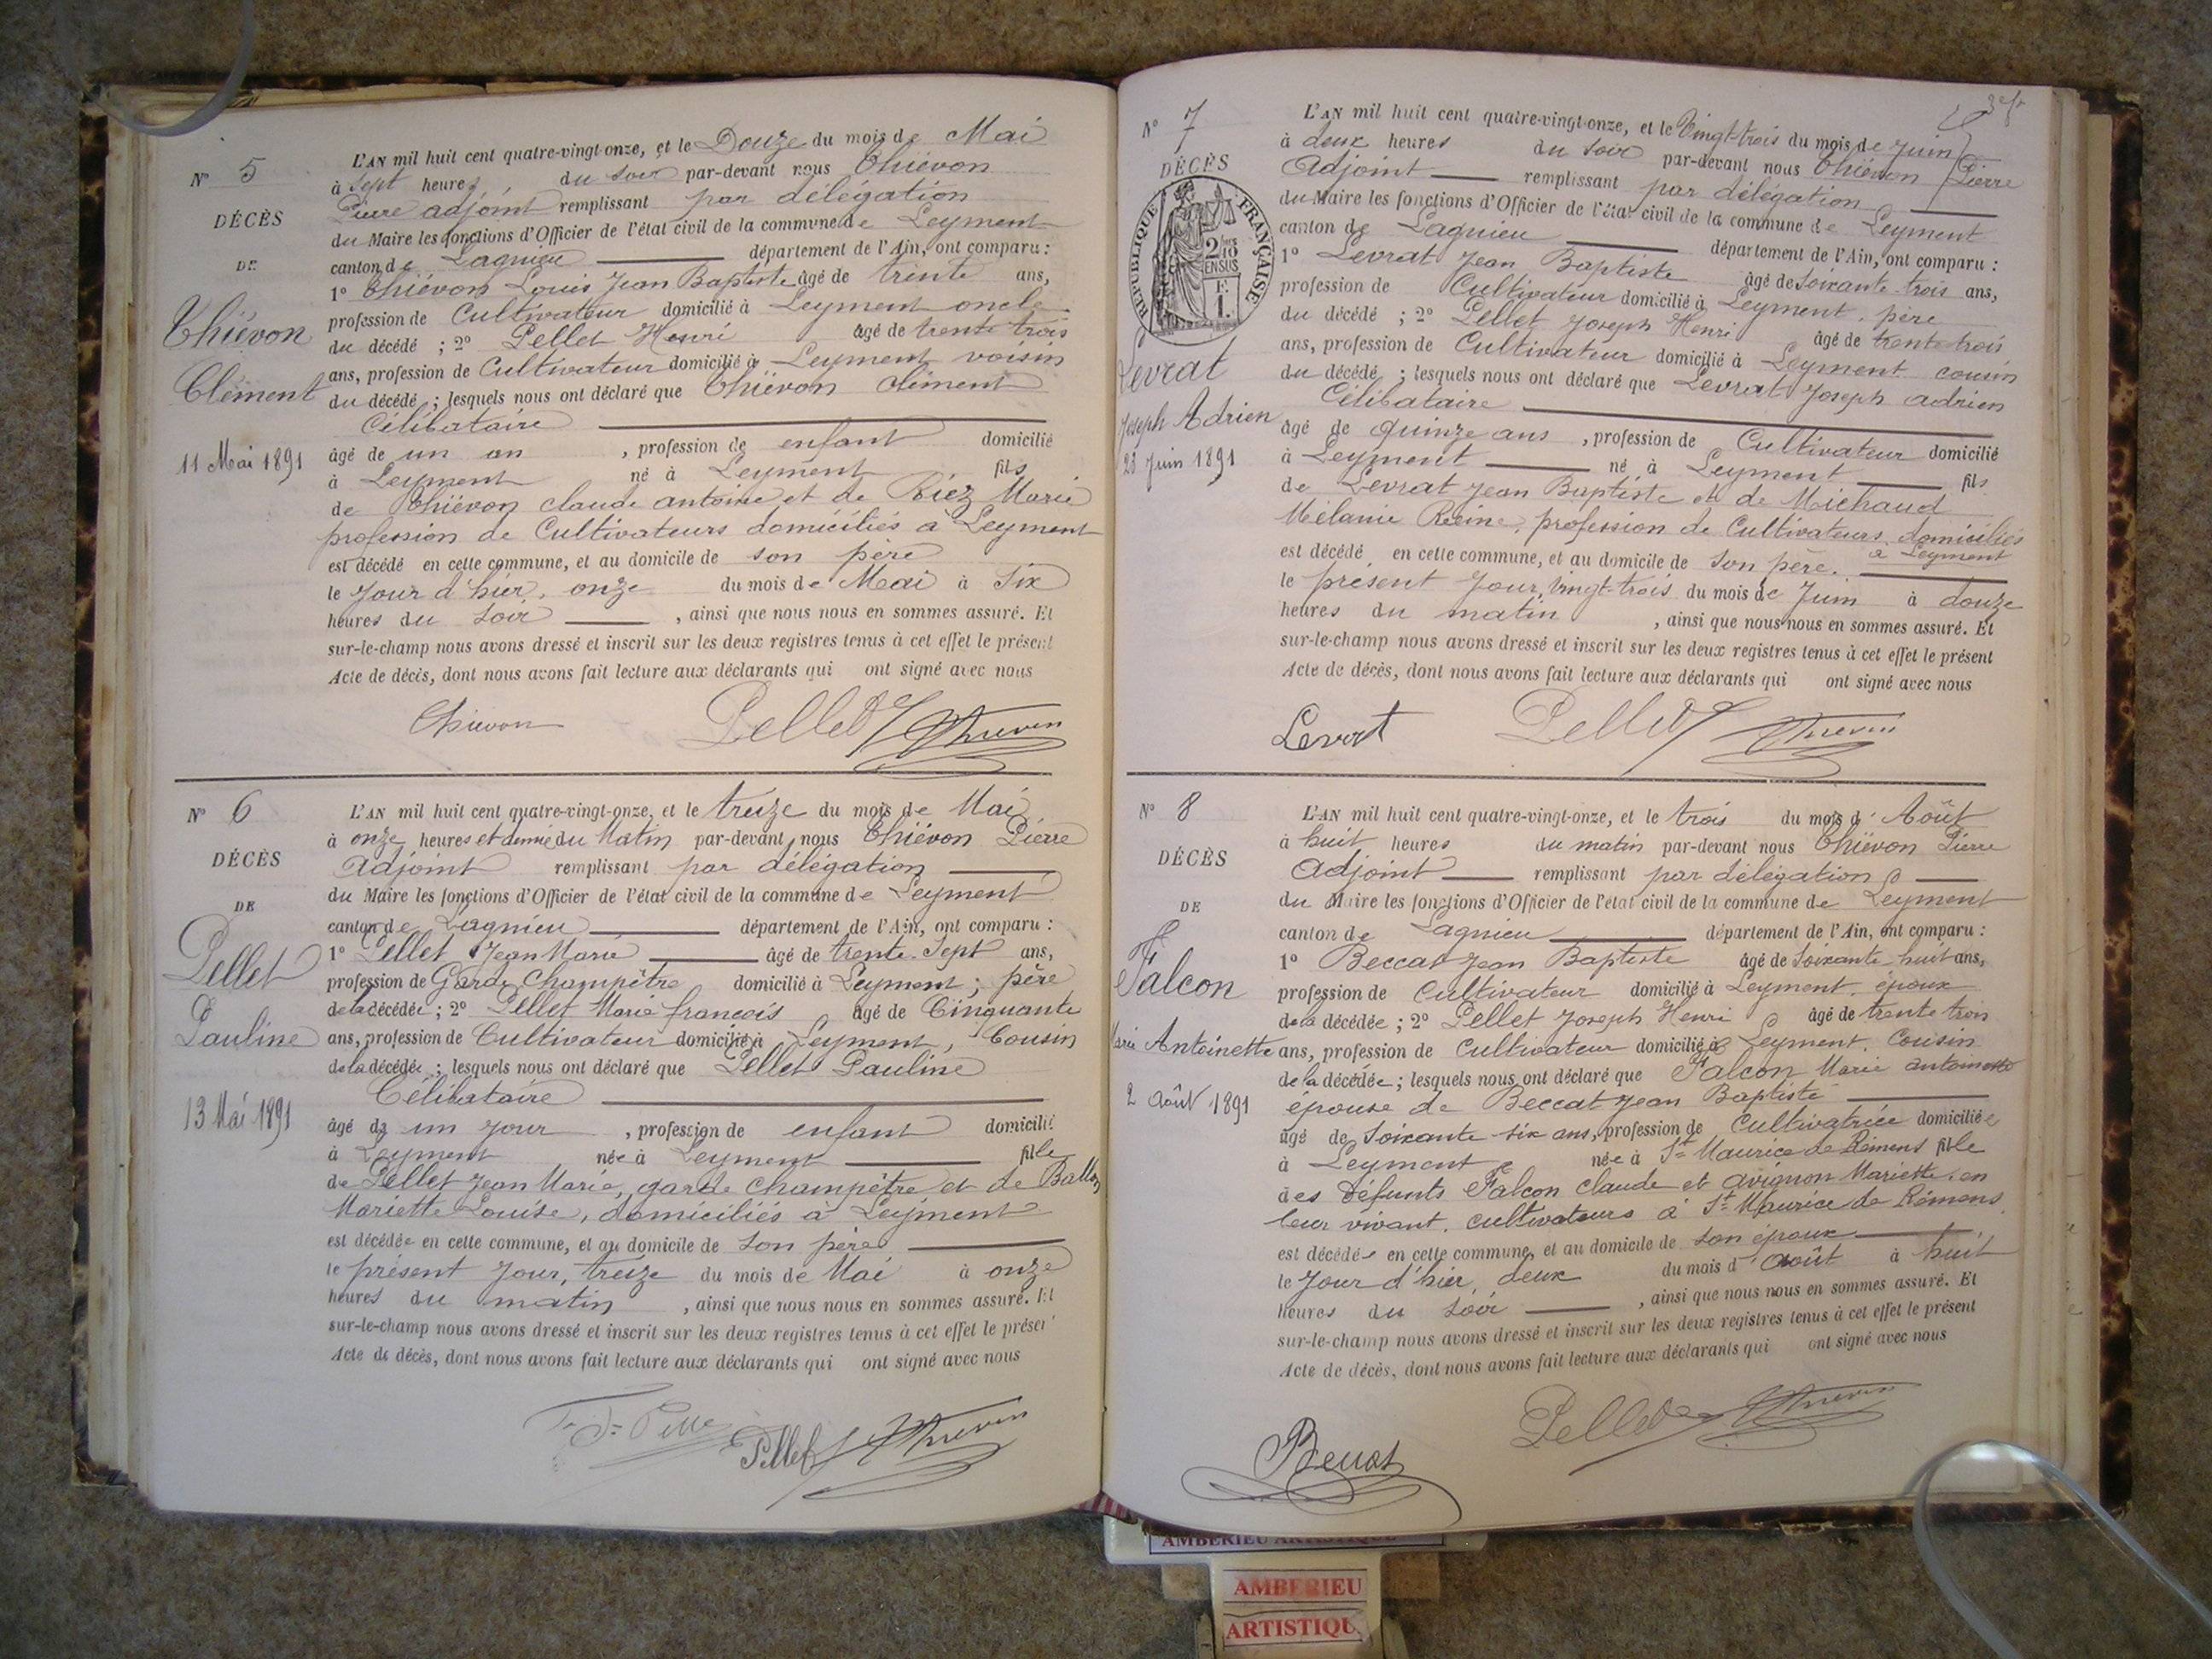 N° 5
DÉCÈS
DE
Thiévon
Clément
11 Mai 1891
L'AN mil huit cent quatre-vingt-onze, et le Douze du mois de Mai
à Sept heures du soir par-devant nous Thiévon
Pierre adjoint remplissant par délégation
du Maire les fonctions d'Officier de l'état civil de la commune de Leyment
canton de Lagnieu département de l'Ain, ont comparu :
1° Thiévon Louis Jean Baptiste âgé de trente ans,
profession de Cultivateur domicilié à Leyment oncle
du décédé ; 2° Pellet Henri âgé de trente trois
ans, profession de Cultivateur domicilié à Leyment voisin
du décédé ; lesquels nous ont déclaré que Thiévon Clément
Célibataire
âgé de un an , profession de enfant domicilié
à Leyment né à Leyment fils
de Thiévon claude antoine et de Riez Marie
profession de Cultivateurs domiciliés à Leyment
est décédé en cette commune, et au domicile de son père
le jour d'hier, onze du mois de Mai à Six
heures du soir , ainsi que nous nous en sommes assuré. Et
sur-le-champ nous avons dressé et inscrit sur les deux registres tenus à cet effet le présent
Acte de décès, dont nous avons fait lecture aux déclarants qui ont signé avec nous
Thievon Pellet Thievon
N° 6
DÉCÈS
DE
Pellet
Pauline
13 Mai 1891
L'AN mil huit cent quatre-vingt-onze, et le treize du mois de Mai
à onze heures et demie du Matin par-devant nous Thiévon Pierre
Adjoint remplissant par délégation
du Maire les fonctions d'Officier de l'état civil de la commune de Leyment
canton de Lagnieu département de l'Ain, ont comparu :
1° Pellet Jean Marie âgé de trente-Sept ans,
profession de Garde Champêtre domicilié à Leyment ; père
de la décédée ; 2° Pellet Marie françois âgé de Cinquante
ans, profession de Cultivateur domicilié à Leyment, Cousin
de la décédée ; lesquels nous ont déclaré que Pellet Pauline
Célibataire
âgé de un jour , profession de enfant domicilié
à Leyment née à Leyment fille
de Pellet Jean Marie, garde champêtre et de
Mariette Louise, domiciliés à Leyment
est décédée en cette commune, et au domicile de son père
le présent jour, treize du mois de Mai à onze
heures du matin , ainsi que nous nous en sommes assuré. Et
sur-le-champ nous avons dressé et inscrit sur les deux registres tenus à cet effet le présen
Acte de décès, dont nous avons fait lecture aux déclarants qui ont signé avec nous
Pellet Thievon
N° 7
DÉCÈS
RÉPUBLIQUE FRANÇAISE
Levrat
Joseph Adrien
23 Juin 1891
L'AN mil huit cent quatre-vingt-onze, et le Vingt-trois du mois de juin
à deux heures du soir par-devant nous Thiévon Pierre
Adjoint remplissant par délégation
du Maire les fonctions d'Officier de l'état civil de la commune de Leyment
canton de Lagnieu département de l'Ain, ont comparu :
1° Levrat Jean Baptiste âgé de Soixante-trois ans,
profession de Cultivateur domicilié à Leyment, père
du décédé ; 2° Pellet Joseph Henri âgé de trente-trois
ans, profession de Cultivateur domicilié à Leyment cousin
du décédé ; lesquels nous ont déclaré que Levrat Joseph adrien
Célibataire
âgé de quinze ans , profession de Cultivateur domicilié
à Leyment né à Leyment fils
de Levrat Jean Baptiste et de Michaud
Mélanie Reine, profession de Cultivateurs domiciliés
à Leyment
est décédé en cette commune, et au domicile de son père.
le présent Jour, vingt-trois du mois de Juin à douze
heures du matin , ainsi que nous nous en sommes assuré. Et
sur-le-champ nous avons dressé et inscrit sur les deux registres tenus à cet effet le présent
Acte de décès, dont nous avons fait lecture aux déclarants qui ont signé avec nous
Levrat Pellet Thievon
N° 8
DÉCÈS
DE
Falcon
Marie Antoinette
2 Août 1891
L'AN mil huit cent quatre-vingt-onze, et le trois du mois d' Août
à huit heures du matin par-devant nous Thiévon Pierre
Adjoint remplissant par délégation
du Maire les fonctions d'Officier de l'état civil de la commune de Leyment
canton de Lagnieu département de l'Ain, ont comparu :
1° Beccat Jean Baptiste âgé de Soixante-huit ans,
profession de Cultivateur domicilié à Leyment, époux
de la décédée ; 2° Pellet Joseph Henri âgé de trente trois
ans, profession de Cultivateur domicilié à Leyment. Cousin
de la décédée ; lesquels nous ont déclaré que Falcon Marie antoinette
épouse de Beccat Jean Baptiste
âgé de Soixante-six ans, profession de Cultivatrice domiciliée
à Leyment née à St Maurice de Rémens fille
des défunts Falcon claude et avignon Mariette, en
leur vivant, cultivateurs à St Maurice de Rémens
est décédée en cette commune, et au domicile de son époux
le jour d'hier, deux du mois d' août à huit
heures du soir , ainsi que nous nous en sommes assuré. Et
sur-le-champ nous avons dressé et inscrit sur les deux registres tenus à cet effet le présent
Acte de décès, dont nous avons fait lecture aux déclarants qui ont signé avec nous
Beccat Pellet Thievon
AMBERIEU ARTISTIQUE
AMBERIEU
ARTISTIQU